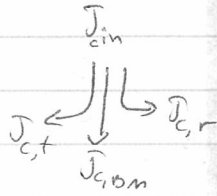 J̄cin
J̄c,t J̄c,r
J̄c,BM